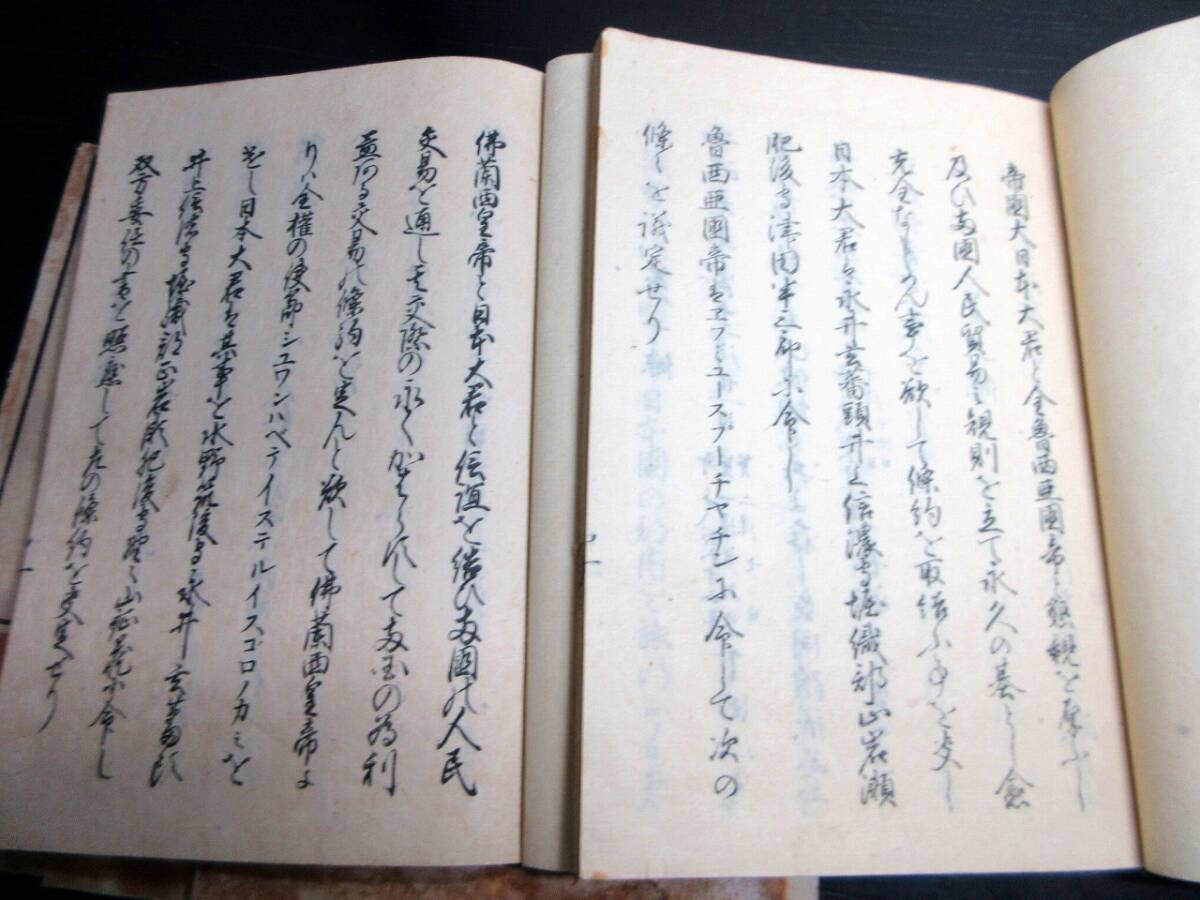 帝國大日本大君と全魯西亜國帝と懇親を厚ふし
及ひ両國人民貿易之規則を立て永久の基とし愈
充全なしめん事を欲して條約を取結ふ事を決し
日本大君者永井玄蕃頭井上信濃守堀織部正岩瀬
肥後守津田半三郎に命し
魯西亜國帝者ヱフミユースプーチヤチンに命して次の
條々を議定せり
佛蘭西皇帝と日本大君と伝誼を結ひ両國の人民
交易を通し其交際の永くかはらすして両國の為利
益ある交易の條約を定んと欲して佛蘭西皇帝よ
りハ全権の使節シユワンハベテイステルイスゴロノカミを
差し日本大君者其事を水野筑後守永井玄蕃頭
井上信濃守堀織部正岩瀬肥後守野々山鉦蔵に命し
双方委任の書を照應して左の條約を定せり